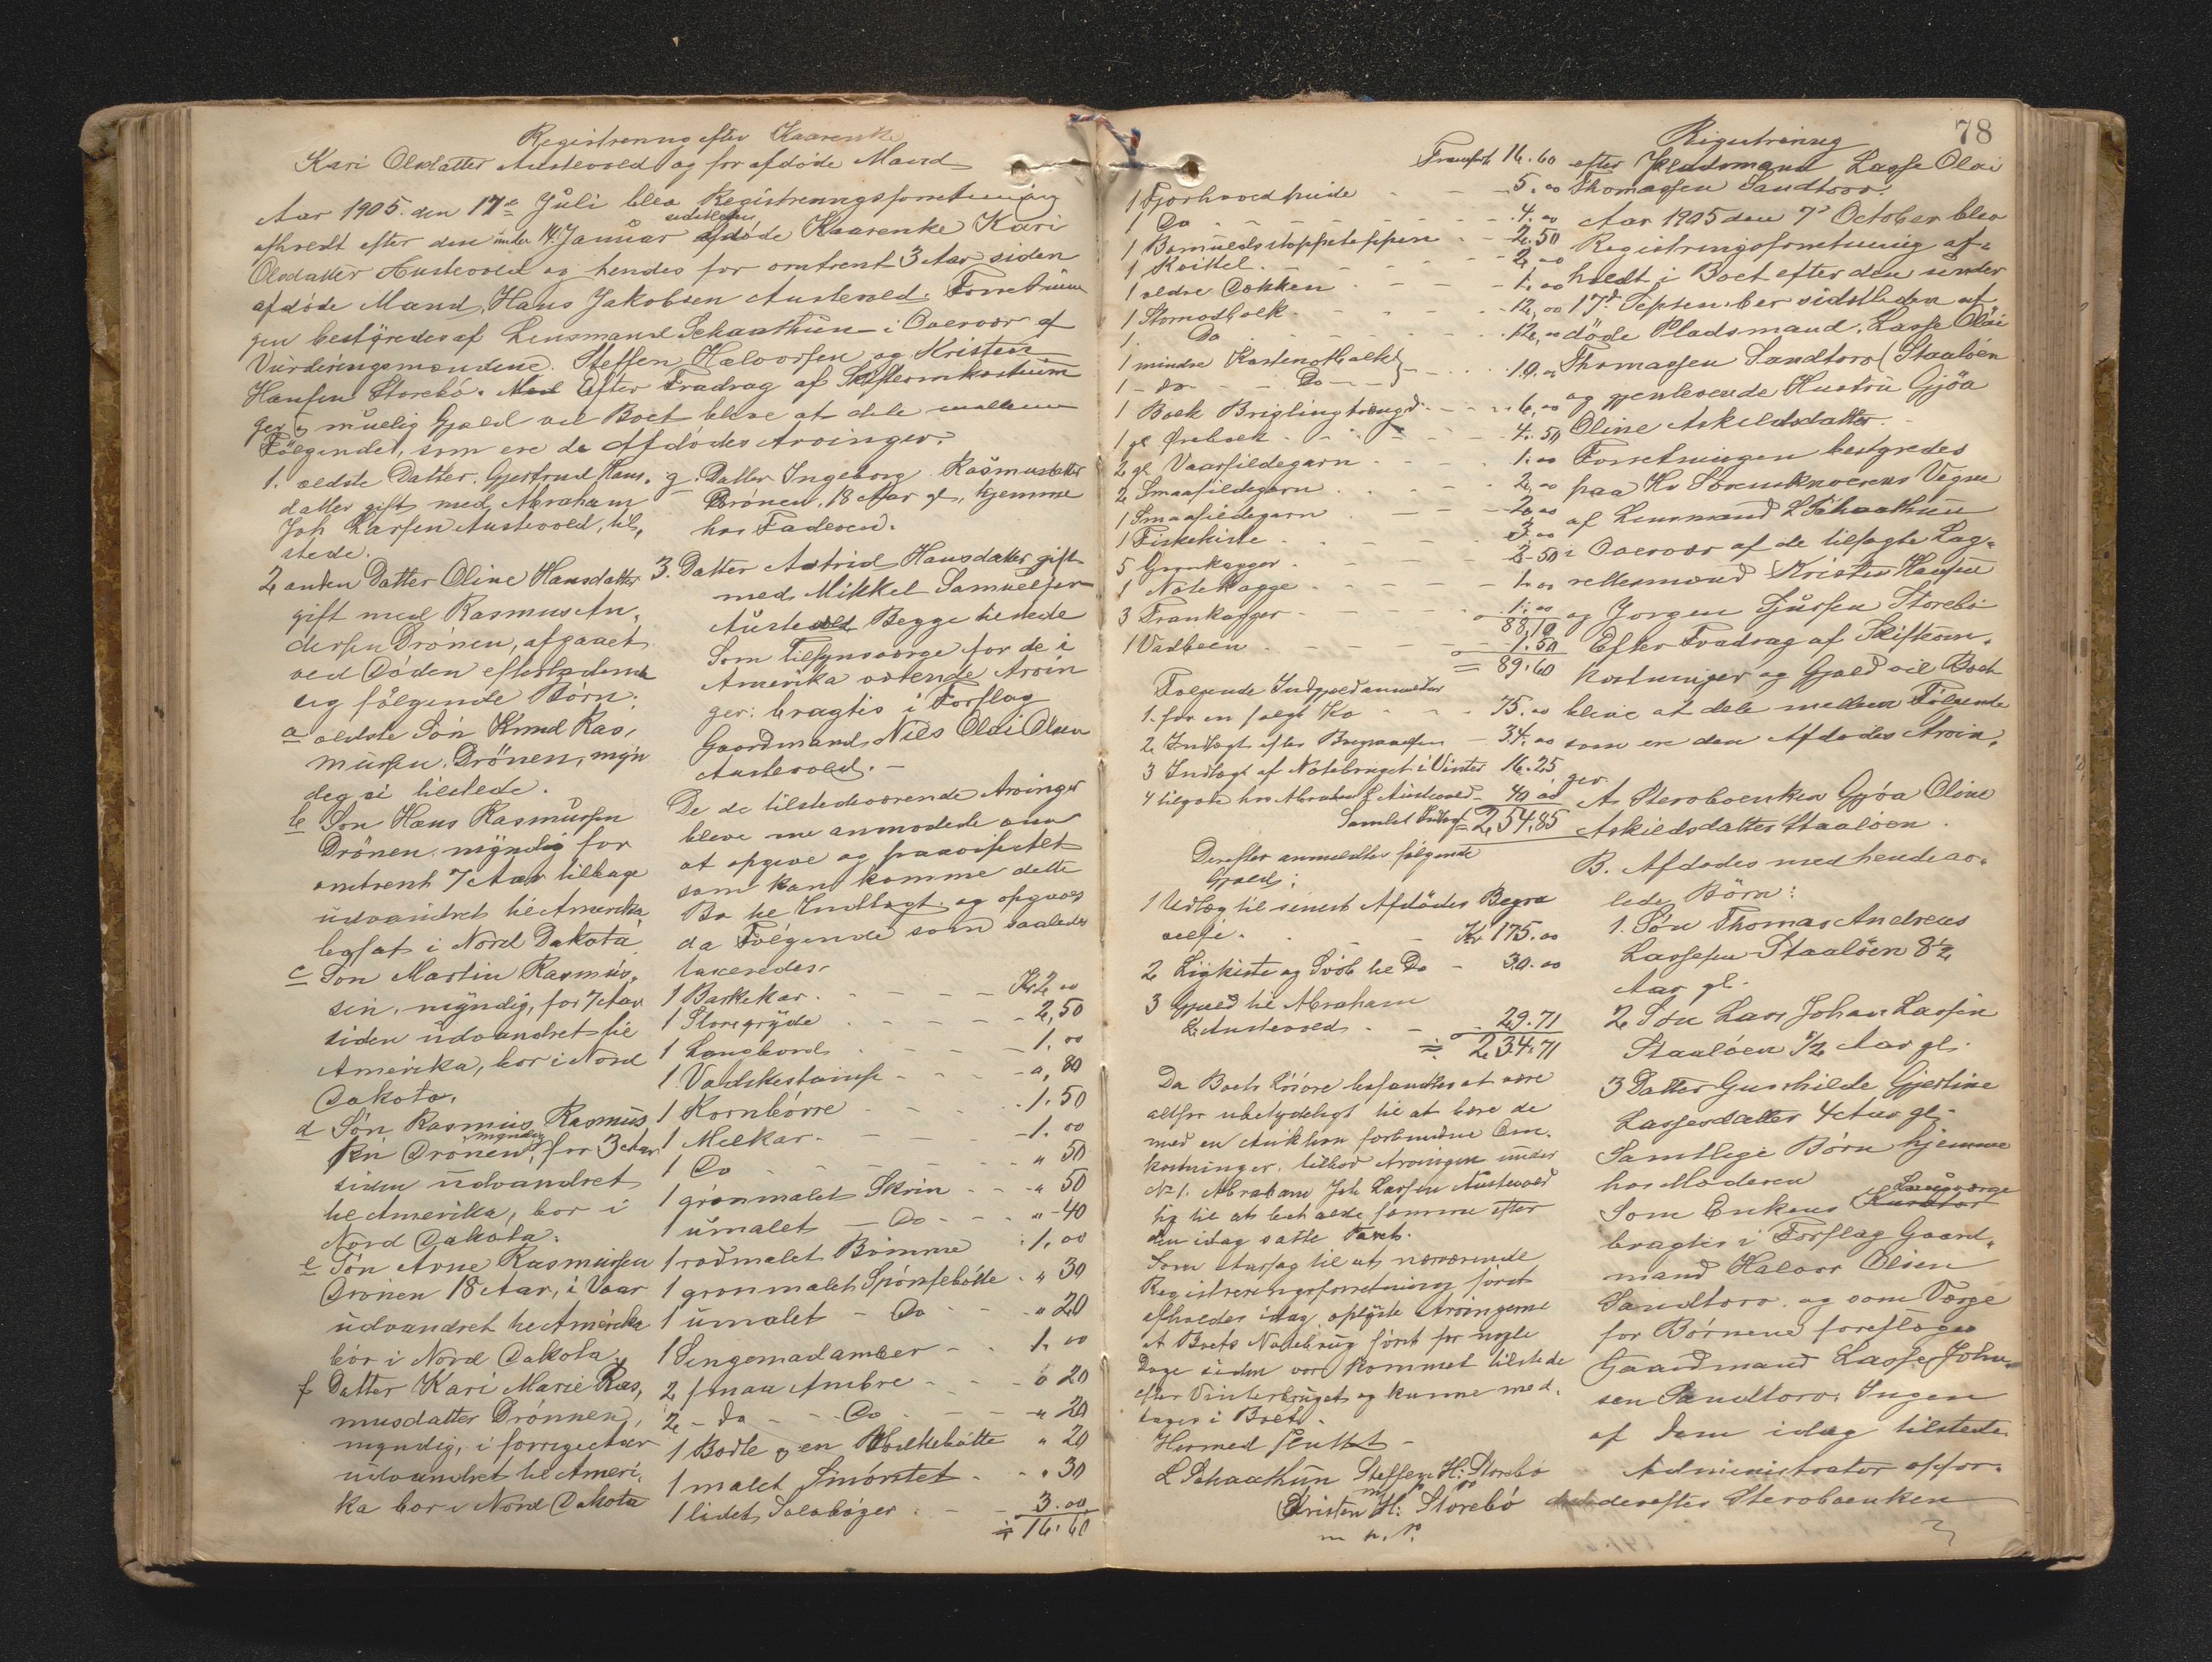 Registrering efter Kaarenke
Kari Olsdatter Austevold og for afdøde Mand
Aar 1905 den 17de Juli blev Registreringsforretning
afholdt efter den under 14. Januar sidstleden afdøde Kaarenke Kari
Olsdatter Austevold og hendes for omtrent 3 Aar siden
afdøde Mand, Hans Jakobsen Austevold. Forretnin
gen bestyredes af Lensmand Schaathun i Overvær af
Vurderingsmændene Steffen Halvorsen og Kristen
Hansen Storebø. Efter Fradrag af Skifteomkostnin
ger & muelig Gjæld vil Boet blive at dele mellem
Følgende, som ere de Afdødes Arvinger.
1. ældste Datter Gjertrud Hans,
datter gift med Abraham
Joh Larsen Austevold, til,
stede.
2 anden Datter Oline Hansdatter
gift med Rasmus An,
dersen Drönen, afgaaet
ved Døden efterladende
sig følgende Børn:
a ældste Søn Knud Ras,
mussen Drönen, myn
dig ei tilstede.
b Søn Hans Rasmussen
Drönen myndig for
omtrent 7 Aar tilbage
udvandret til Amerika
bosat i Nord Dakota
c Søn Martin Rasmus,
sen, myndig, for 7 Aar
siden udvandret til
Amerika, bor i Nord
Dakota.
d Søn Rasmus Rasmus
sen Drönen, myndig, for 3 Aar
siden udvandret
til Amerika, bor i
Nord Dakota.
e Søn Arne Rasmussen
Drönen 18 Aar, i Vaar
udvandret til Amerika
bor i Nord Dakota,
f Datter Kari Marie Ras,
musdatter Drönnen,
myndig, i forrige Aar
udvandret til Ameri,
ka bor i Nord Dakota
g. Datter Ingeborg Rasmusdatter
Drönen, 18 Aar gl, hjemme
hos Faderen.
3. Datter Astrid Hansdatter gift
med Mikkel Samuelsen
Austevold Begge tilstede
Som Tilsynsværge for de i
Amerika værende Arvin
ger bragtes i Forslag
Gaardmand Nils Olai Olsen
Austevold. -
De de tilstedeværende Arvinger
bleve nu anmodede om
at opgive og paavise alt
som kan komme dette
Bo til Indtægt og opgaves
da Følgende som saaledes
taxeredes.
1 Barkekar - Kr 2,00
1 Storegryde - 2,50
1 Langbord - 1.00
1 Vadskestamp - 0,80
1 Kornbørre - 1.50
1 Melkar - 1.00
1 Do - " 50
1 grønmalet Skrin - " 50
1 umalet - Do - " 40
1 rødmalet Bømme - 1,00
1 grønmalet Spønsebøtte - " 30
1 umalet - Do - " 20
1 Sengemadamber - 1.00
2 smaa Ambre - 0 20
2 - do - Do - " 20
1 Bøtle & en Melkebøtte " 20
1 malet Smørstet - " 30
1 lidet Sølvbæger - 3.00
= 16.60
78
Transport 16.60
1 Fjorhoved pude - 5.00
1 Do - 4.00
1 Bomuldsstoppeteppen - 2.50
1 Kvittel - 2.00
1 ældre Dækken - 1.00
1 Stornotbolk - 12,00
1 Do - 12,00
1 mindre Kastenotbolk
1 - do - Do - 10.00
1 Bolk Briglingtrengd - 6,00
1 gl Ørebolk - 4.50
2 gl Vaarsildegarn - 1.00
2 Smaasildegarn - 2,00
1 Smaasildegarn - 2,00
1 Fiskekiste - 3.00
5 Grønkagger - 2.50
1 Notekagge - 1.00
3 Trankagger - 1.00
88,10
1 Vadbeen - 1.50
= 89.60
Følgende Indgjæld anmeldtes
1. for en solgt Ko - 75.00
2 Indtægt efter - 34.00
3 Indtægt af Notebruget i Vinter 16.25
4 tilgode hos Abraham L Austevold - 40.00
Samlet Indtægt = 254,85
Derefter anmeldtes følgende
Gjæld:
1 Udlæg til senest Afdødes Begra
velse - Kr 175.00
2 Ligkiste og Svøb til Do - 30.00
3 Gjæld til Abraham
L Austevold - 29.71
= 234.71
Da Boets Løsøre befandtes at være
altfor ubetydeligt til at bære de
med en Auktion forbundne Om,
kostninger, tilbød Arvingen under
No 1. Abraham Joh Larsen Austevold
sig til at beholde samme efter
den idag satte Taxt.
Som Aarsag til at nærværende
Registreringsforretning først
afholdes idag, oplyste Arvingerne
at Boets Notebrug først for nogle
Dage siden var kommet tilstede
efter Vinterbruget og kunne med,
tages i Boet.
Hermed sluttet -
L Schaathun Steffen H: Storebø
Kristen H: Storebø
m. p. P.
Registrering
efter Pladsmand Lasse Olai
Thomassen Sandtorv.
Aar 1905 den 7d October blev
Registreringsforretning af,
holdt i Boet efter den under
17d September sidstleden af,
døde Pladsmand, Lasse Olai
Thomassen Sandtorv (Staaløen
og gjenlevende Hustru Gjøa
Oline Askeldsdatter.
Forretningen bestyredes
paa Hr Sorenskriverens Vegne
af Lensmand L Schaathun
i Overvær af de tilsagte Lag,
rettesmænd Kristen Hansen
og Jørgen Sjursen Storebø
Efter Fradrag af Skifteom,
kostninger og Gjæld vil Boet
blive at dele mellem Følgende
som ere den Afdødes Arvin,
ger.
A Stervboenken Gjøa Oline
Askildsdatter Staaløen.
B. Afdødes med hende av,
lede Børn:
1. Søn Thomas Andreas
Lassesen Staaløen 8½
Aar gl.
2 Søn Lars Johan Lassesen
Staaløen ½ Aar gl.
3 Datter Gunhilde Gjertine
Lassesdatter 4 Aar gl.
Samtlige Børn hjemme
hos Moderen
Som Enkens Kurator Laugværge
bragtes i Forslag Gaard,
mand Halvor Olsen
Sandtorv, og som Værge
for Børnene foresloges
Gaardmand Lasse John,
sen Sandtorv. Ingen
af dem idag tilstede.
Administrator opfor,
drede derefter Stervboenken